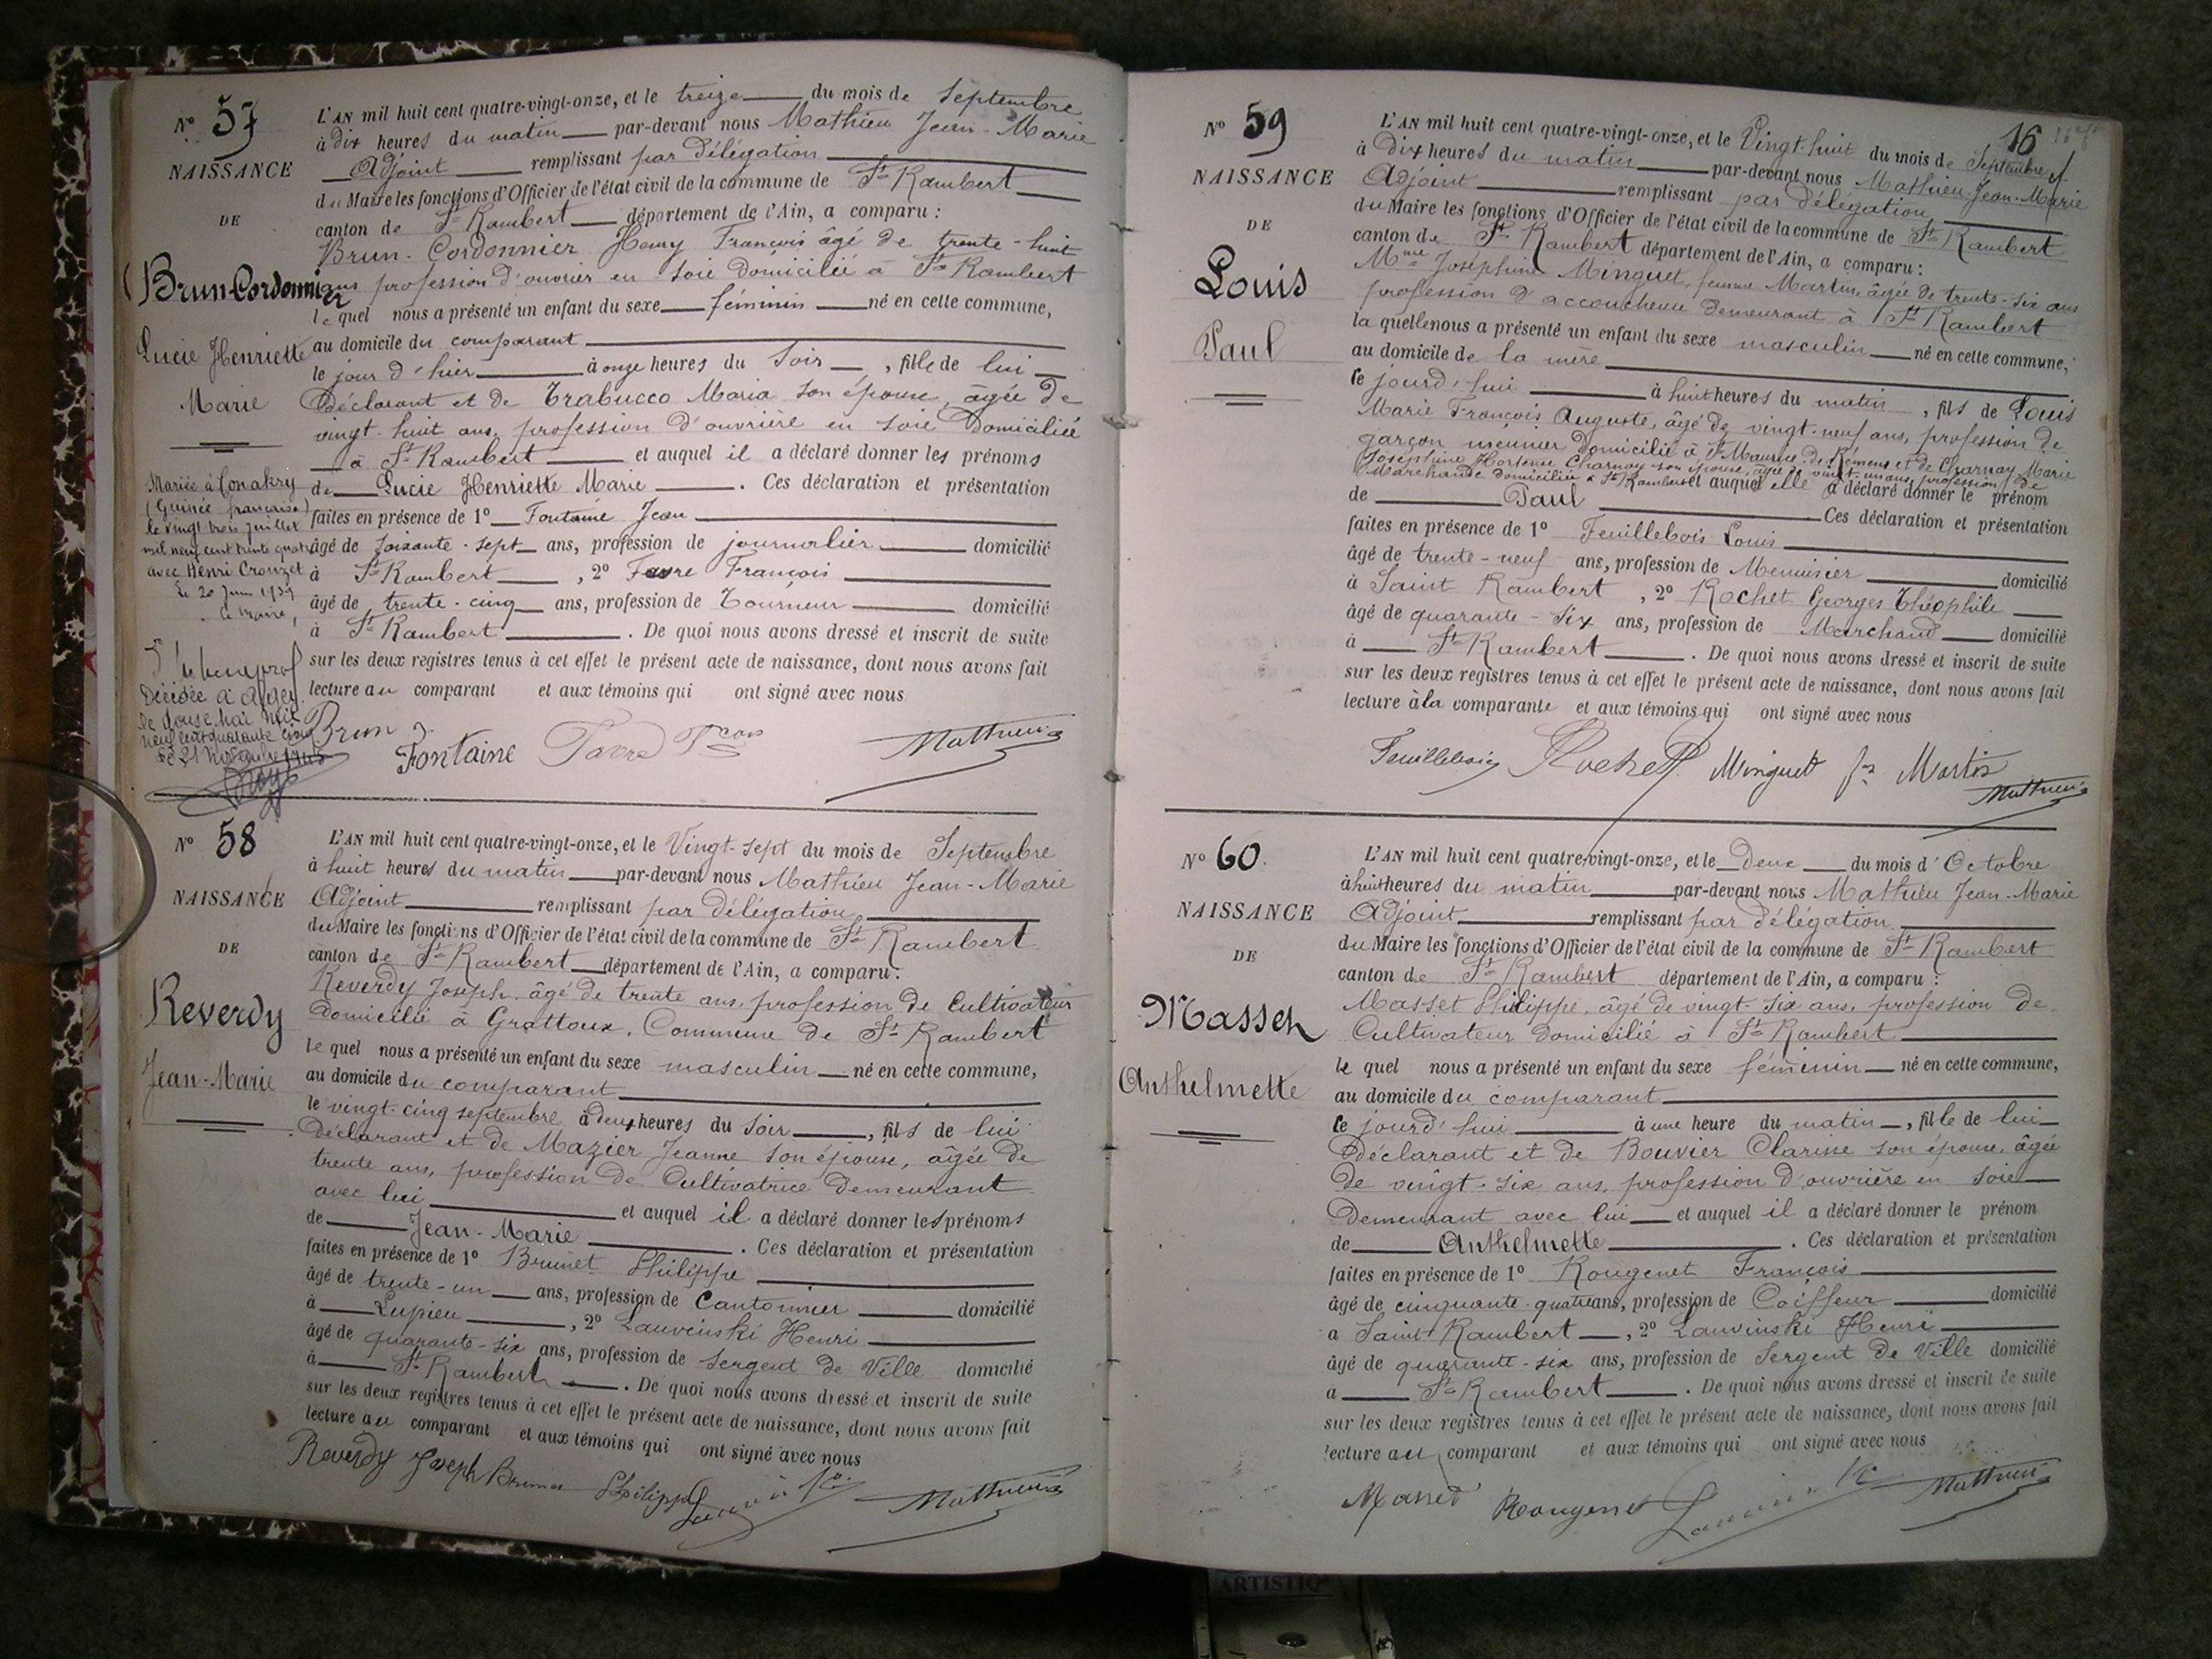 N° 57
NAISSANCE
DE
Brun-Cordonnier
Lucie Henriette
Marie
Mariée à Conakry
(Guinée française)
le vingt trois juillet
mil neuf cent trente quatre
avec Henri Crouzet
Le 20 Juin 1939
Le Maire,
Décédée à Alger
le douze mai mil
neuf cent quarante cinq
Le 21 Novembre 1945
L'AN mil huit cent quatre-vingt-onze, et le treize du mois de Septembre
à dix heures du matin par-devant nous Mathieu Jean-Marie
Adjoint remplissant par délégation
du Maire les fonctions d'Officier de l'état civil de la commune de St Rambert
canton de St Rambert département de l'Ain, a comparu :
Brun-Cordonnier Henry François âgé de trente-huit
ans profession d'ouvrier en soie domicilié à St Rambert
le quel nous a présenté un enfant du sexe féminin né en cette commune,
au domicile du comparant
le jour d'hier à onze heures du soir, fille de lui
déclarant et de Trabucco Maria son épouse, âgée de
vingt-huit ans, profession d'ouvrière en soie domiciliée
à St Rambert et auquel il a déclaré donner les prénoms
de Lucie Henriette Marie. Ces déclaration et présentation
faites en présence de 1° Fontaine Jean
âgé de soixante-sept ans, profession de journalier domicilié
à St Rambert, 2° Favre François
âgé de trente-cinq ans, profession de Tourneur domicilié
à St Rambert. De quoi nous avons dressé et inscrit de suite
sur les deux registres tenus à cet effet le présent acte de naissance, dont nous avons fait
lecture au comparant et aux témoins qui ont signé avec nous
Brun
Fontaine Favre Fcois Mathieu
N° 58
NAISSANCE
DE
Reverdy
Jean-Marie
L'AN mil huit cent quatre-vingt-onze, et le Vingt-sept du mois de Septembre
à huit heures du matin par-devant nous Mathieu Jean-Marie
Adjoint remplissant par délégation
du Maire les fonctions d'Officier de l'état civil de la commune de St Rambert
canton de St Rambert département de l'Ain, a comparu :
Reverdy Joseph, âgé de trente ans, profession de Cultivateur
domicilié à Grattoux, Commune de St Rambert
le quel nous a présenté un enfant du sexe masculin né en cette commune,
au domicile du comparant
le vingt-cinq septembre à deux heures du soir, fils de lui
déclarant et de Mazier Jeanne son épouse, âgée de
trente ans, profession de Cultivatrice demeurant
avec lui et auquel il a déclaré donner les prénoms
de Jean-Marie. Ces déclaration et présentation
faites en présence de 1° Brunet Philippe
âgé de trente-un ans, profession de Cantonnier domicilié
à Lupieu, 2° Lauvinski Henri
âgé de quarante-six ans, profession de Sergent de Ville domicilié
à St Rambert. De quoi nous avons dressé et inscrit de suite
sur les deux registres tenus à cet effet le présent acte de naissance, dont nous avons fait
lecture au comparant et aux témoins qui ont signé avec nous
Reverdy Joseph Brunet Philippe Mathieu
16
N° 59
NAISSANCE
DE
Louis
Paul
L'AN mil huit cent quatre-vingt-onze, et le Vingt-huit du mois de Septembre
à Dix heures du matin par-devant nous Mathieu Jean-Marie
Adjoint remplissant par délégation
du Maire les fonctions d'Officier de l'état civil de la commune de St Rambert
canton de St Rambert département de l'Ain, a comparu :
Mme Joséphine Minguet, femme Martin, âgée de trente-six ans
profession d'accoucheuse demeurant à St Rambert
la quelle nous a présenté un enfant du sexe masculin né en cette commune,
au domicile de la mère
le jourd'hui à huit heures du matin, fils de Louis
Marie François Auguste, âgé de vingt-neuf ans, profession de
garçon meunier domicilié à St Maurice de Rémens et de Charnay Marie
Joséphine Hortense Charnay son épouse, âgée de vingt-un ans, profession de
Marchande domiciliée à St Rambert et auquel elle a déclaré donner le prénom
de Paul Ces déclaration et présentation
faites en présence de 1° Feuillebois Louis
âgé de trente-neuf ans, profession de Menuisier domicilié
à Saint Rambert, 2° Rochet Georges Théophile
âgé de quarante-six ans, profession de Marchand domicilié
à St Rambert. De quoi nous avons dressé et inscrit de suite
sur les deux registres tenus à cet effet le présent acte de naissance, dont nous avons fait
lecture à la comparante et aux témoins qui ont signé avec nous
Feuillebois Rochet Minguet fe Martin
Mathieu
N° 60.
NAISSANCE
DE
Masset
Anthelmette
L'AN mil huit cent quatre-vingt-onze, et le Deux du mois d'Octobre
à huit heures du matin par-devant nous Mathieu Jean-Marie
Adjoint remplissant par délégation
du Maire les fonctions d'Officier de l'état civil de la commune de St Rambert
canton de St Rambert département de l'Ain, a comparu :
Masset Philippe, âgé de vingt-six ans, profession de
Cultivateur domicilié à St Rambert
le quel nous a présenté un enfant du sexe féminin né en cette commune,
au domicile du comparant
le jourd'hui à une heure du matin, fille de lui
déclarant et de Bouvier Clarisse son épouse, âgée
de vingt-six ans, profession d'ouvrière en soie
demeurant avec lui et auquel il a déclaré donner le prénom
de Anthelmette. Ces déclaration et présentation
faites en présence de 1° Rougenet François
âgé de cinquante-quatre ans, profession de Coiffeur domicilié
à Saint Rambert, 2° Lauvinski Henri
âgé de quarante-six ans, profession de Sergent de Ville domicilié
à St Rambert. De quoi nous avons dressé et inscrit de suite
sur les deux registres tenus à cet effet le présent acte de naissance, dont nous avons fait
lecture au comparant et aux témoins qui ont signé avec nous
Masset Rougenet Mathieu
ARTISTIQ